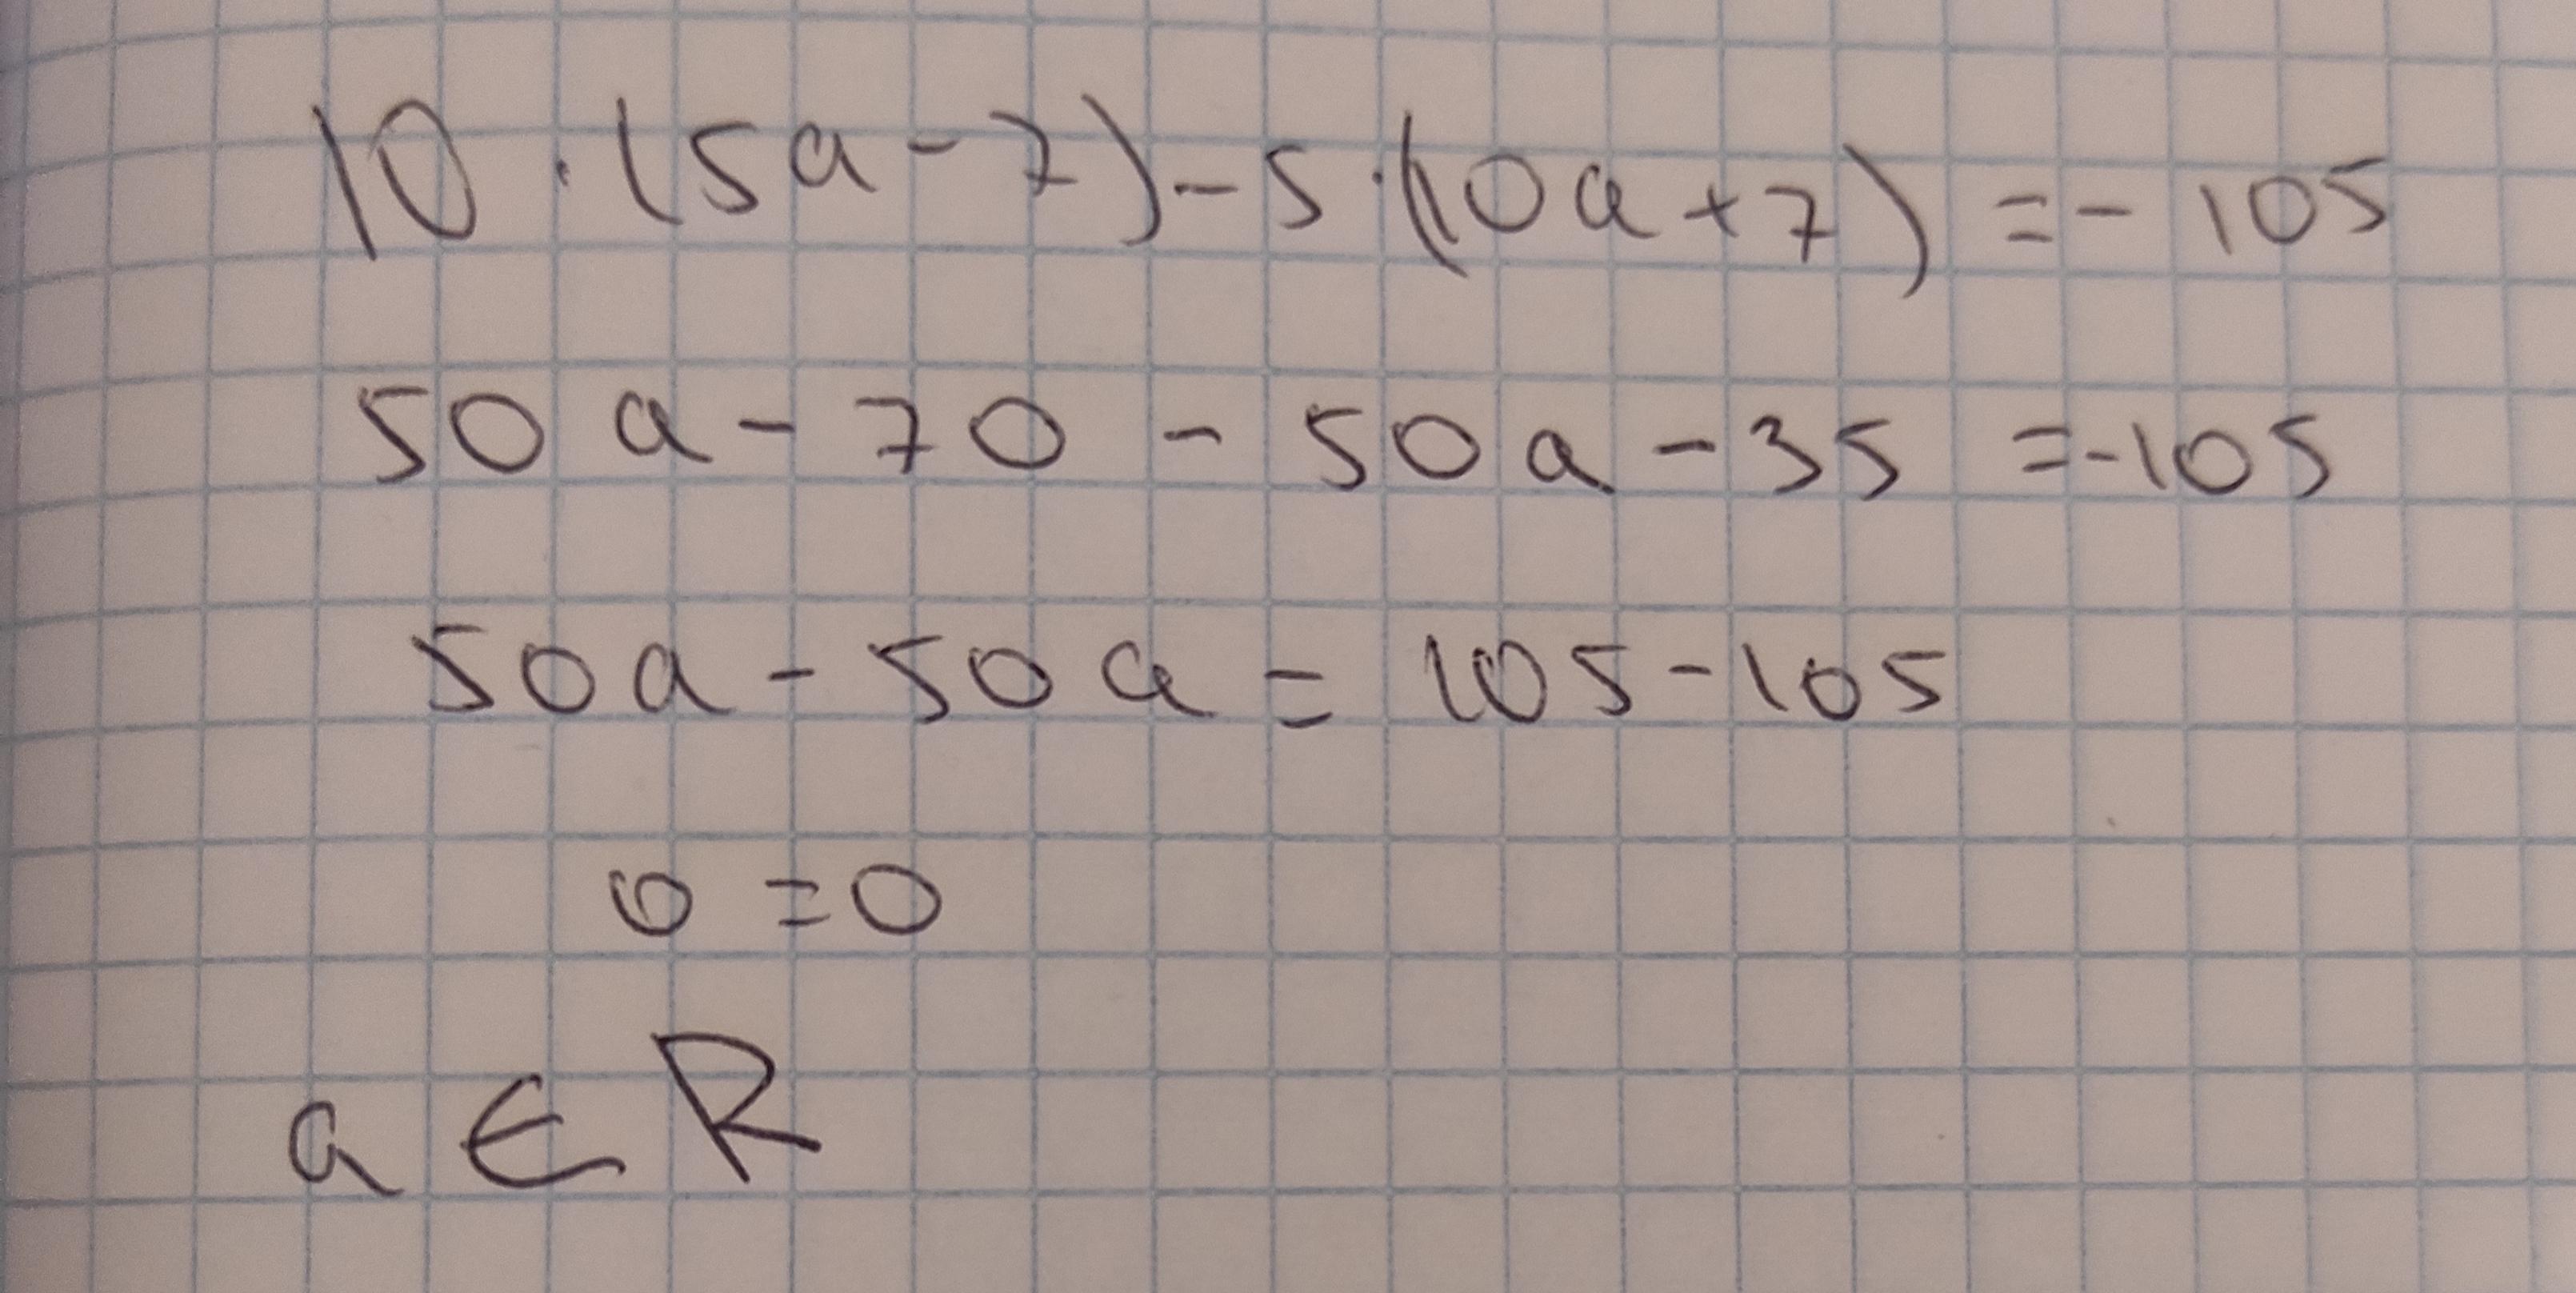 10 · (5a - 7) - 5 · (10a + 7) = - 105
50a - 70 - 50a - 35 = -105
50a - 50a = 105 - 105
0 = 0
a ∈ R